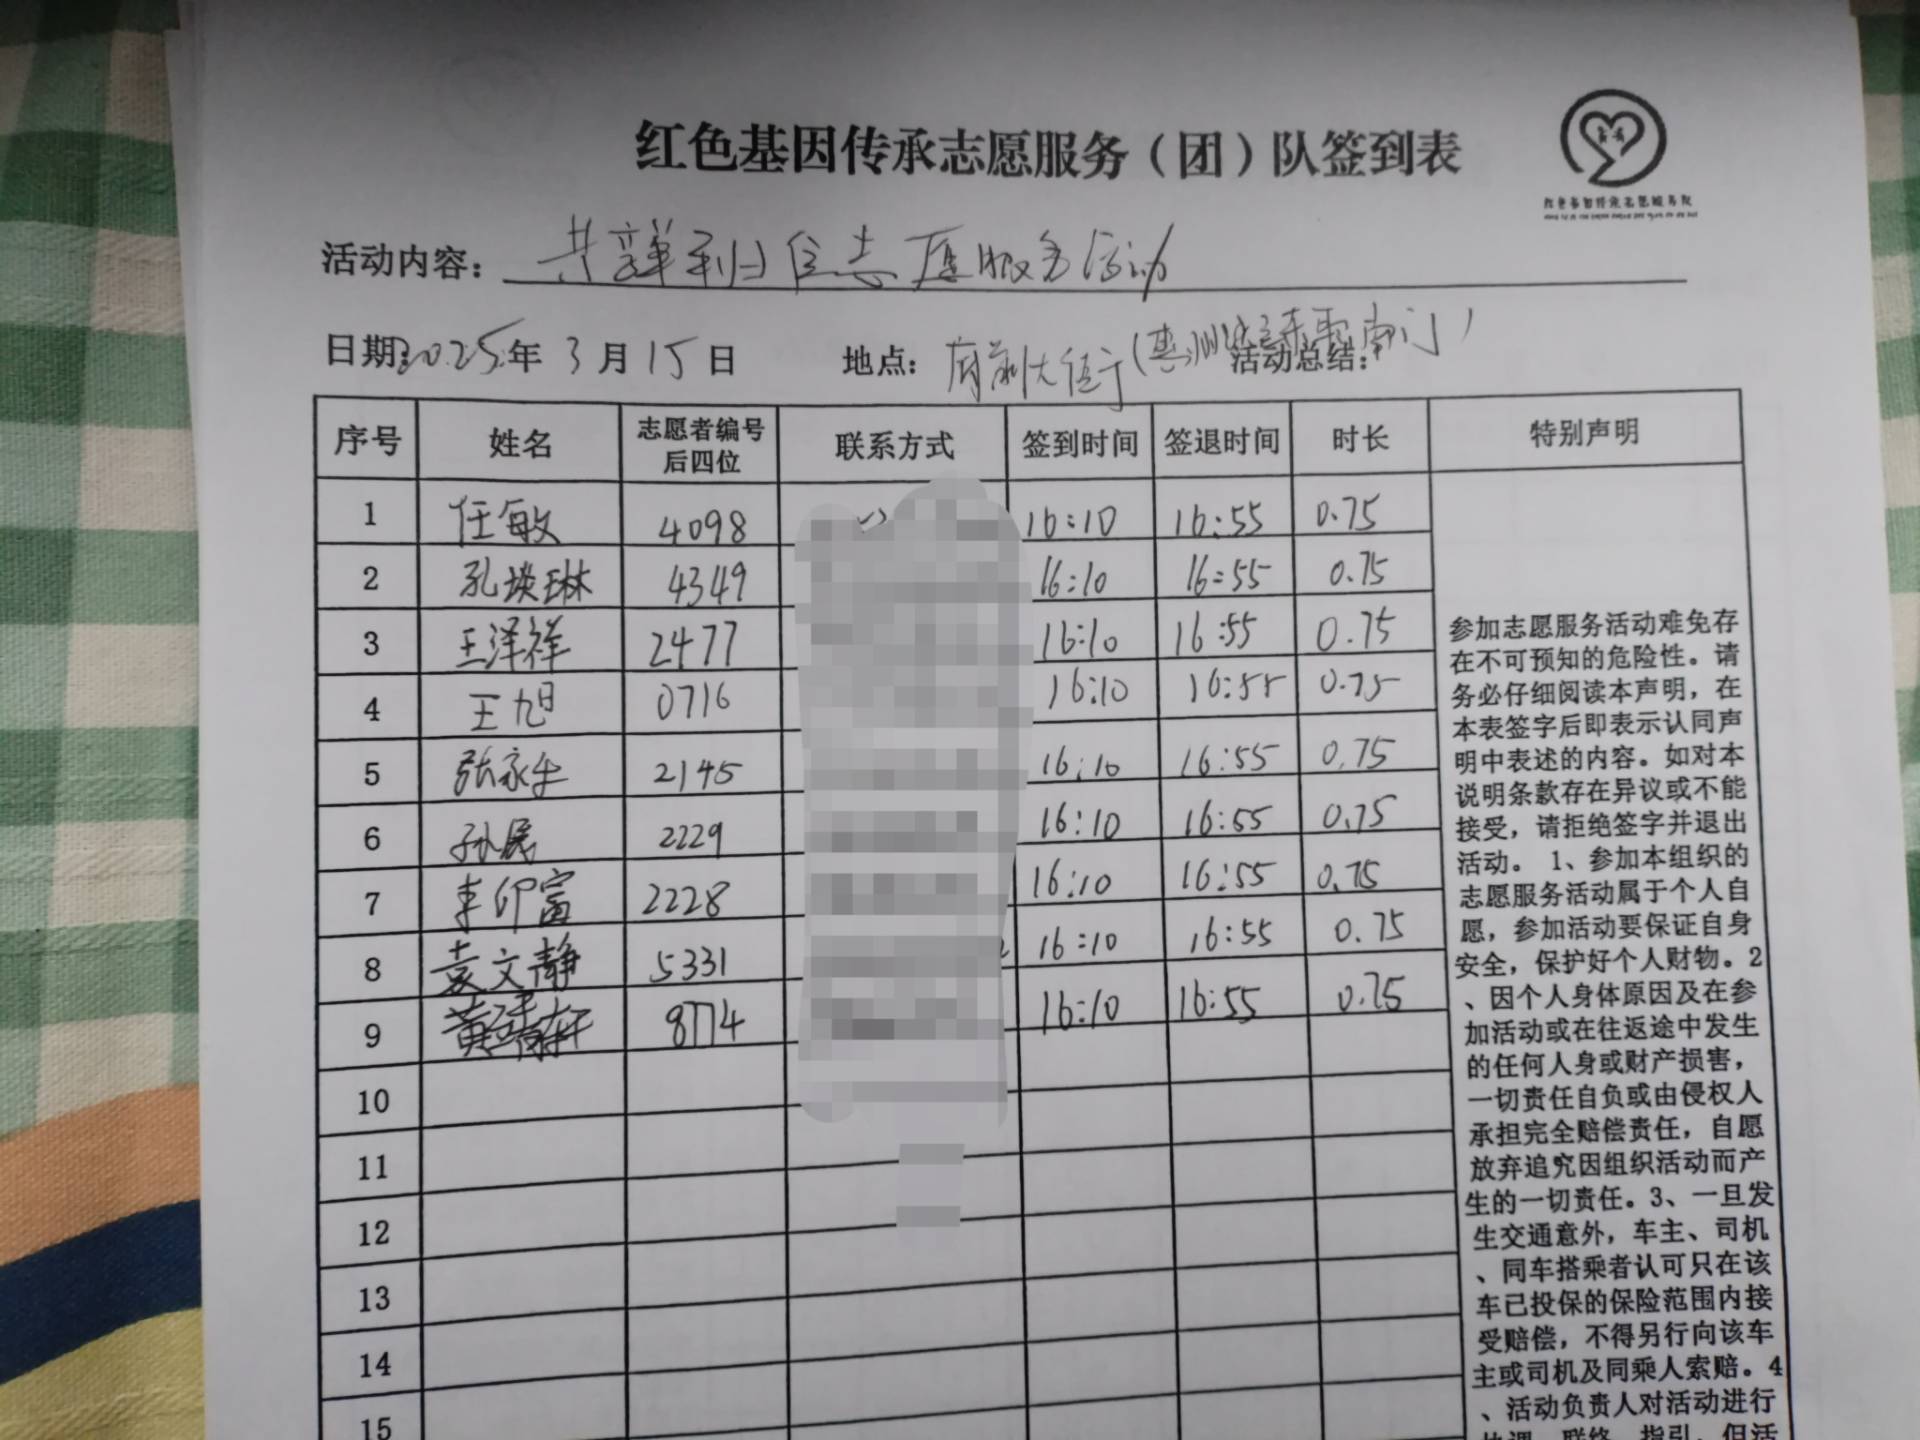 红色基因传承志愿服务（团）队签到表
活动内容：共享单车归位志愿服务活动
日期：2025年3月15日 地点：府前大街 南门） 活动总结：
序号 姓名 志愿者编号后四位 联系方式 签到时间 签退时间 时长 特别声明
1 任敏 4098 16:10 16:55 0.75
2 孔琳 4349 16:10 16:55 0.75
3 王泽祥 2477 16:10 16:55 0.75
4 王旭 0716 16:10 16:55 0.75
5 张永生 2145 16:10 16:55 0.75
6 孙晨 2229 16:10 16:55 0.75
7 李印富 2228 16:10 16:55 0.75
8 袁文静 5331 16:10 16:55 0.75
9 黄靖轩 8774 16:10 16:55 0.75
10
11
12
13
14
15
参加志愿服务活动难免存
在不可预知的危险性。请
务必仔细阅读本声明，在
本表签字后即表示认同声
明中表述的内容。如对本
说明条款存在异议或不能
接受，请拒绝签字并退出
活动。1、参加本组织的
志愿服务活动属于个人自
愿，参加活动要保证自身
安全，保护好个人财物。2
、因个人身体原因及在参
加活动或在往返途中发生
的任何人身或财产损害，
一切责任自负或由侵权人
承担完全赔偿责任，自愿
放弃追究因组织活动而产
生的一切责任。3、一旦发
生交通意外，车主、司机
、同车搭乘者认可只在该
车已投保的保险范围内接
受赔偿，不得另行向该车
主或司机及同乘人索赔。4
、活动负责人对活动进行